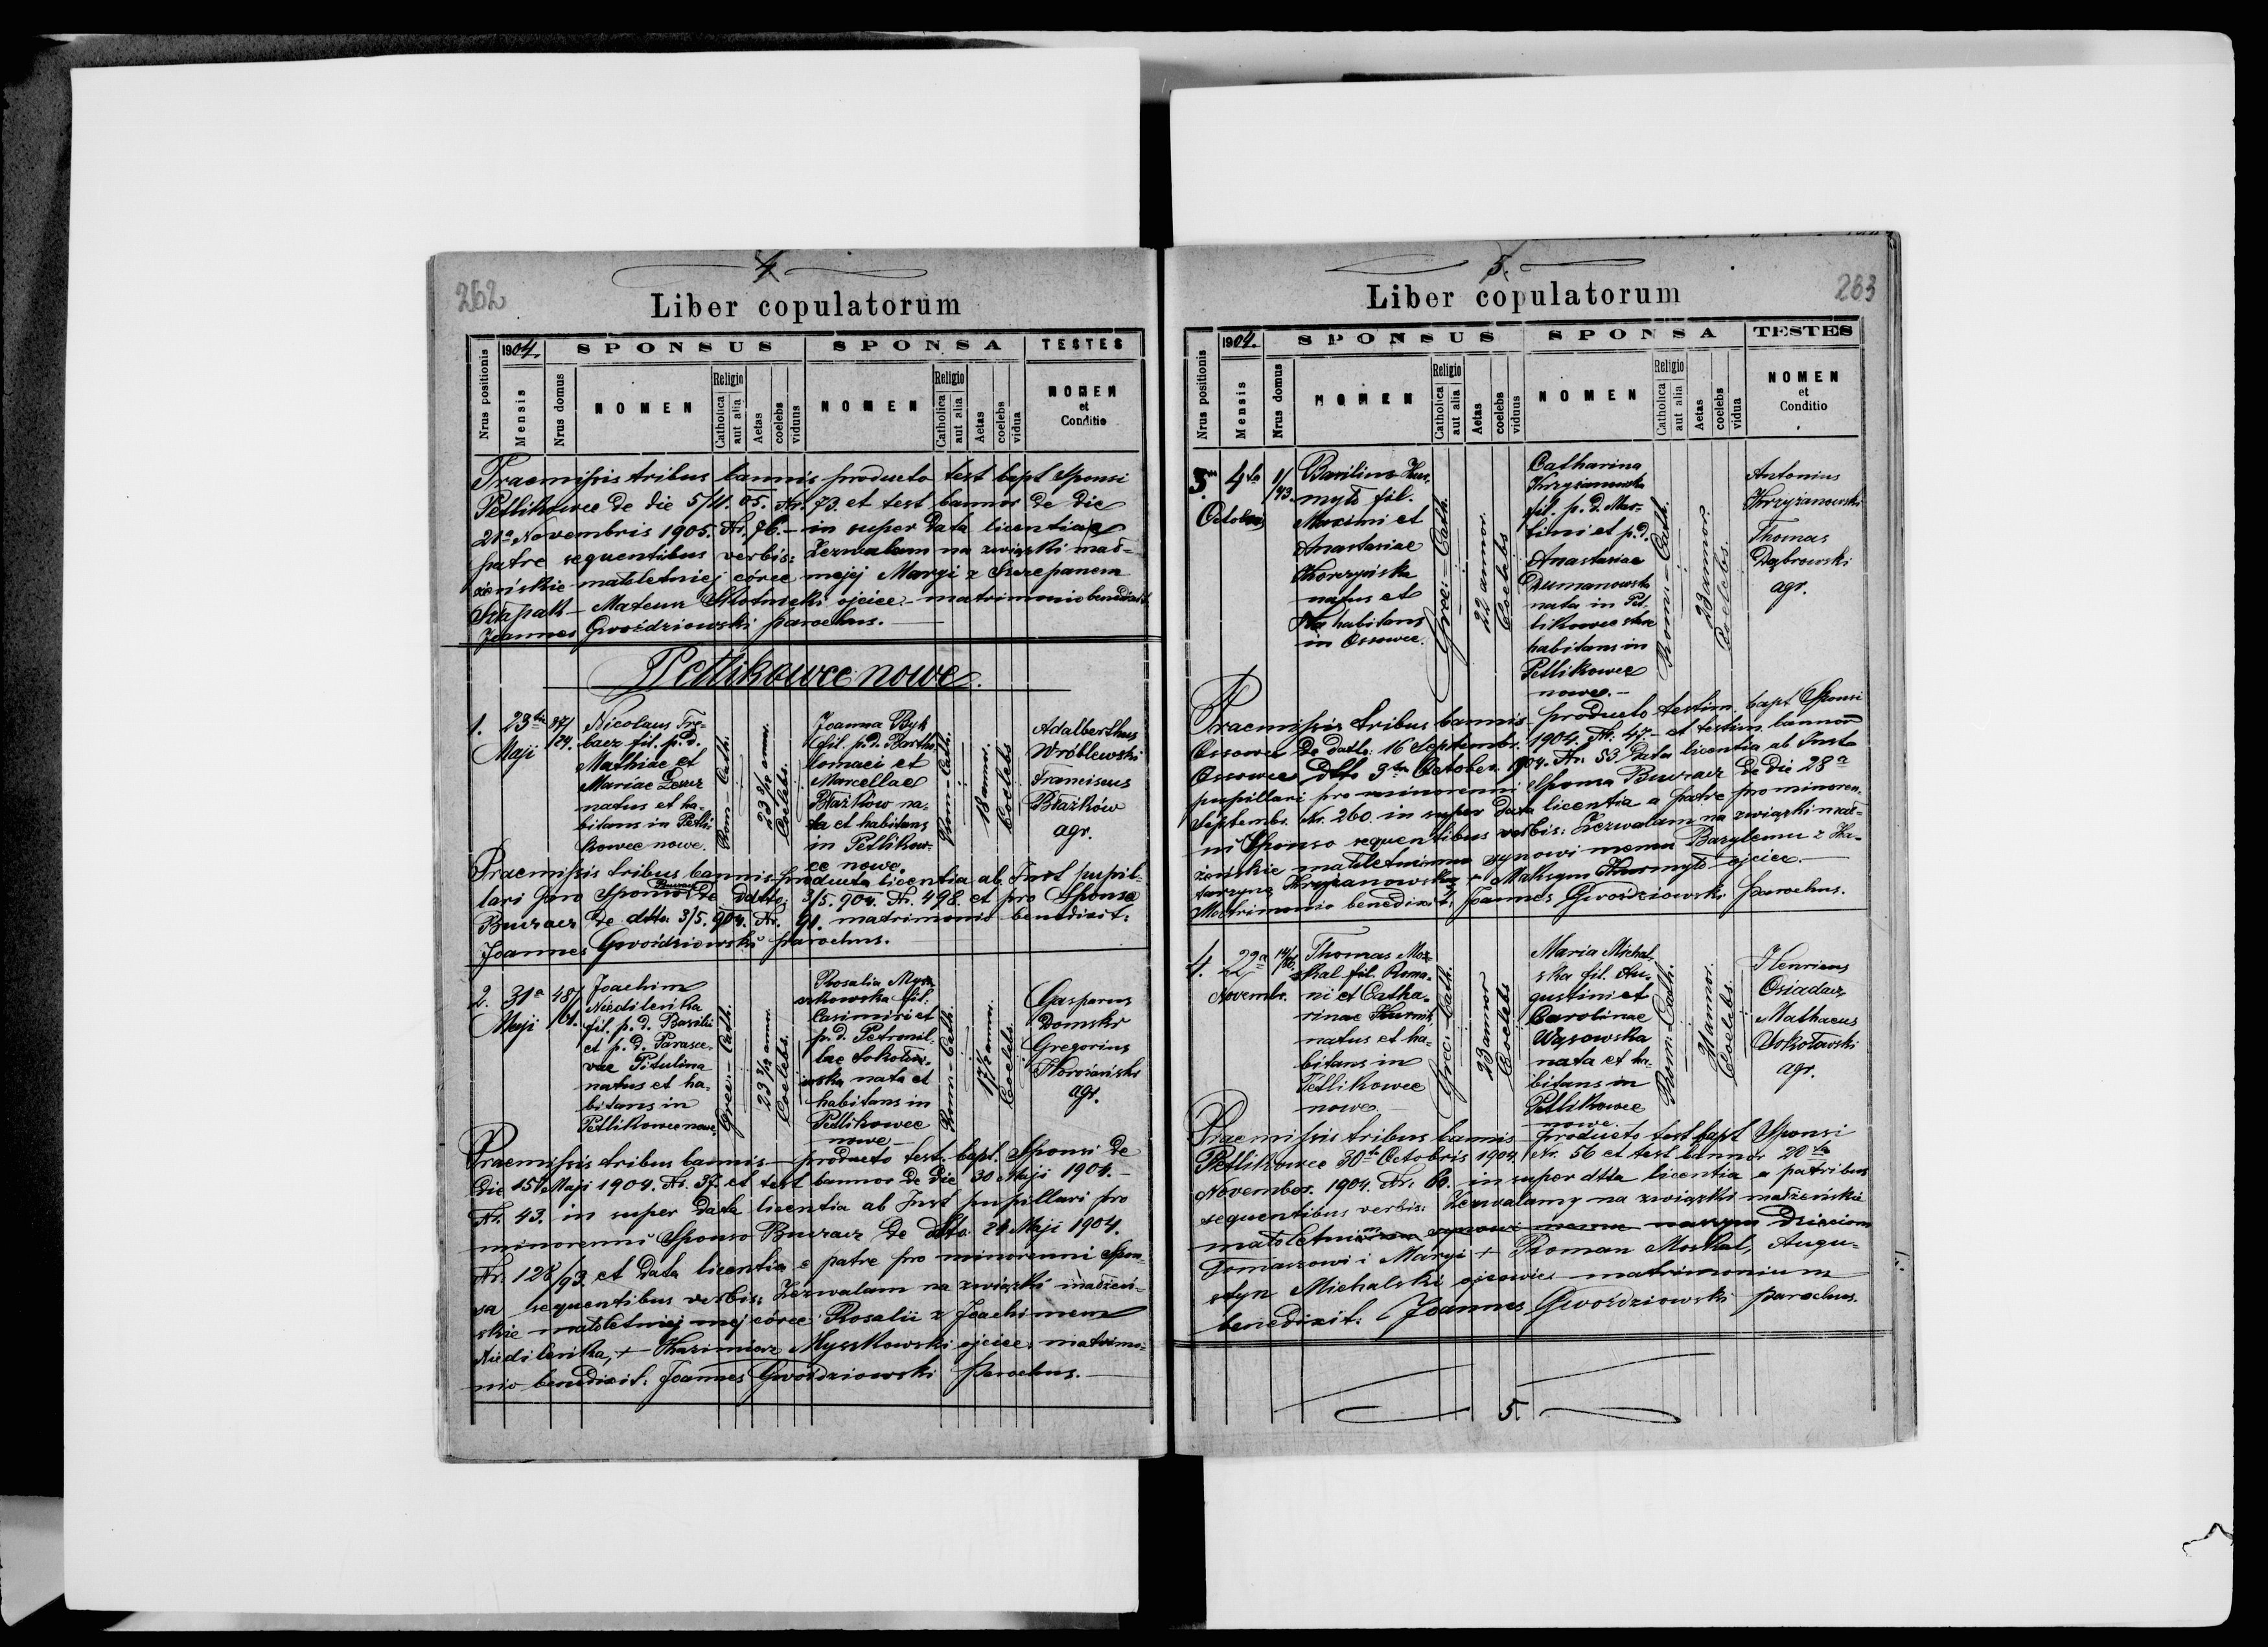 4
262
Liber copulatorum
Nrus positionis
1904.
Mensis
Nrus domus
SPONSUS
NOMEN
Religio
Catholica
aut alia
Aetas
coelebs
viduus
SPONSA
NOMEN
Religio
Catholica
aut alia
Aetas
coelebs
vidua
TESTES
NOMEN
et
Conditio
Praemissis tribus bannis producto test bapt Sponsi
Petlikowce de die 5/11. 05. Nr. 73. et test bannor de die
21a Novembris 1905. Nr. 76. – in super data licentia a
patre sequentibus verbis: Zezwalam na związki mał-
żeńskie małoletniej córce mojej Maryi z Szczepanem
– Mateusz Słotwicki ojciec. – matrimonio benedixit
Joannes Gwoździowski parochus.
Petlikowce nowe.
1.
23tia
Maji
87/
124.
Nicolaus Tre-
bacz fil. p. d.
Mathiae et
Mariae
natus et ha-
bitans in Petli-
kowce nowe.
Rom-Cath.
23 annor.
Coelebs.
Joanna Byk
fil. p. d. Bartho-
lomaei et
Marcellae
Błażków na-
ta et habitans
in Petlikow-
ce nowe.
Rom-Cath.
18 annor.
Coelebs
Adalberthus
Wróblewski
Franciscus
Błażków
agr.
Praemissis tribus bannis producta licentia ab Inst pupil-
lari pro Sponso Buczacz de datto: 3/5. 904. Nr. 498. et pro Sponsa
Buczacz de dtto. 3/5. 904. Nr. 91. matrimonio benedixit:
Joannes Gwoździowski parochus.
2.
31a
Maji
48/
Joachim
Niedilenka
fil. p. d. Basilii
et p. d. Parasce-
vae Pitulina
natus et ha-
bitans in
Petlikowce nowe.
Grec.-Cath.
23 annor.
Coelebs.
Rosalia Mysz-
kowska fil:
Casimiri et
p. d. Petronil-
lae Sokołow-
ska nata et
habitans in
Petlikowce
nowe –
Rom-Cath.
17 1/2 annor.
Coelebs.
Gasparus
Domskr
Gregorius
agr.
Praemissis tribus bannis – producto test. bapt. Sponsi de
die 15 Maji 1904. Nr. 37. et test bannor de die 30 Maji 1904. –
Nr. 43. in super data licentia ab Inst pupillari pro
minorenni Sponso Buczacz de dtto. 21 Maji 1904.
Nr. 128/93. et data licentia e patre pro minorenni Spon-
sa sequentibus verbis: Zezwalam na związki małżeń-
skie małoletniej mej córce Rosalii z Joachimem
Niedilenka, + Kazimierz Myszkowski ojciec. matrimo-
nio benedixit: Joannes Gwoździowski parochus.
5.
263
Liber copulatorum
Nrus positionis
1904.
Mensis
Nrus domus
SPONSUS
NOMEN
Religio
Catholica
aut alia
Aetas
coelebs
viduus
SPONSA
NOMEN
Religio
Catholica
aut alia
Aetas
coelebs
vidua
TESTES
NOMEN
et
Conditio
3.
4ta
Octobris
1/
193.
Basilius Kus-
mylo fil.
Maximi et
Anastasiae
Korczyńska
natus et
habitans
in Ossowce.
Grec.-Cath.
22 annor.
Coelebs
Catharina
Krzyżanowska
fil. p. d. Mar-
tini et p. d.
Anastasiae
Dumanowska
nata in Pet-
likowce stare
habitans in
Petlikowce
nowe. –
Rom.-Cath.
23 annor.
Coelebs.
Antonius
Krzyżanowski
Thomas
Dąbrowski
agr.
Praemissis tribus bannis – producto testim. bapt. Sponsi
Ossowce De datto: 16 Septembr. 1904. Nr. 47. – et testim. bannor
Ossowce dtto 3tia October. 1904. Nr. 53. data licentia ab Inst.
pupillari pro minorenni Sponsa Buczacz de die 28a
Septembr. Nr. 260. in super data licentia a patre pro minoren-
ni Sponso sequentibus verbis: Zezwalam na związki mał-
żeńskie małoletniemu synowi memu Bazylemu z Ka-
tarzyną Krzyżanowską + Maksym Kusmyło ojciec. –
Matrimonio benedixit: Joannes Gwoździowski parochus.
4.
22a
Novembr.
Thomas Mos-
kal fil. Roma-
ni et Catha-
rinae
natus et ha-
bitans in
Petlikowce
nowe. –
Grec.-Cath.
23 annor
Coelebs
Maria Michal-
ska fil. Au-
gustini et
Carolinae
Wąsowska
nata et ha-
bitans in
Petlikowce
nowe.
Rom.-Cath.
21 annor.
Coelebs.
Henricus
Osiadacz
Mathaeus
Sokołowski
agr.
Praemissis tribus bannis – producto test bapt Sponsi
Petlikowce 30ta Octobris 1904. Nr. 56 et test bannor 20ta
November. 1904. Nr. 60. in super dtta licentia a patribus
sequentibus verbis: Zezwalamy na związki małżeńskie
małoletnim synowi memu naszym dzieciom
Tomaszowi i Maryi + Roman Moskal, Augu-
styn Michalski ojcowie. – matrimonium
benedixit. Joannes Gwoździowski parochus.
5.